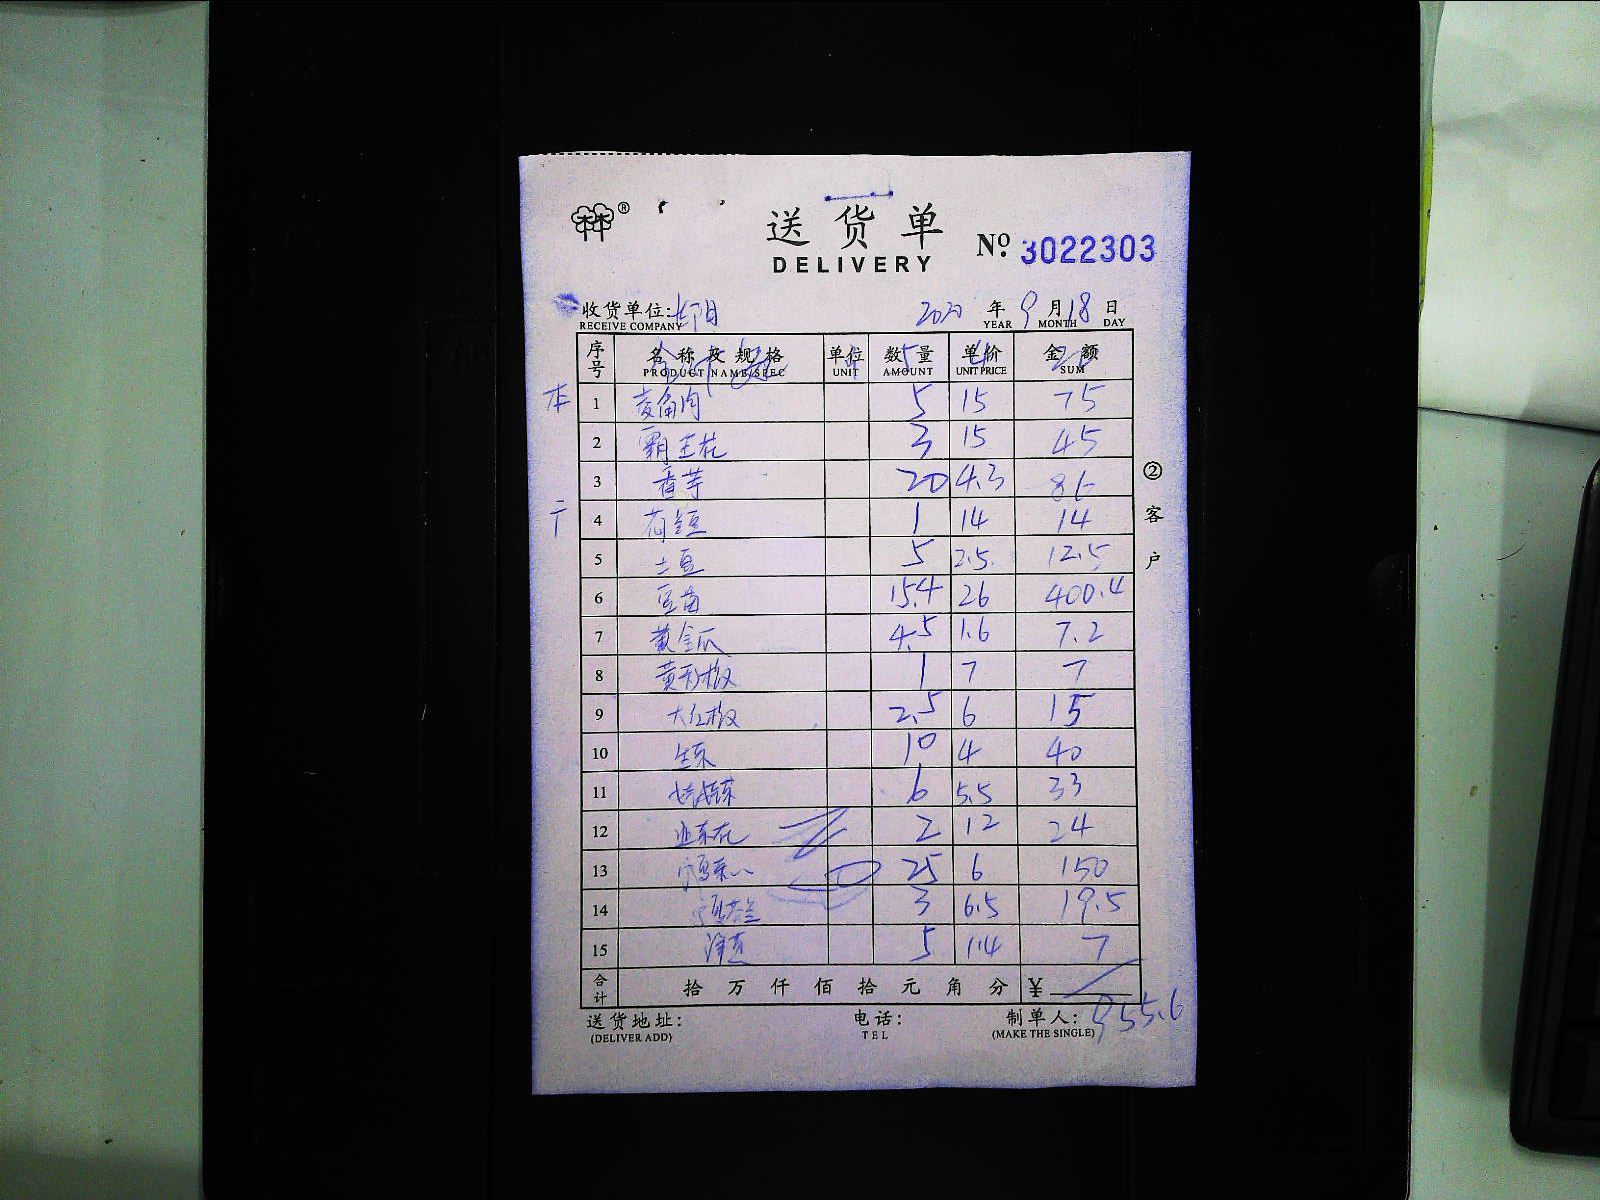 送货单
DELIVERY
№: 3022303
收货单位: 2020 年 9 月 18 日
RECEIVE COMPANY YEAR MONTH DAY
序号 名称及规格 单位 数量 单价 金额
PRODUCT NAME/SPEC UNIT AMOUNT UNIT PRICE SUM
5 4 20
本
1 菱角肉 5 15 75
2 霸王花 3 15 45
3 香芋 20 4.3 86
4 荷兰豆 1 14 14
5 土豆 5 2.5 12.5
6 豆苗 15.4 26 400.4
7 黄金瓜 4.5 1.6 7.2
8 黄彩椒 1 7 7
9 大红椒 2.5 6 15
10 生菜 10 4 40
11 娃娃菜 6 5.5 33
12 韭菜花 2 12 24
13 25 6 150
14 3 6.5 19.5
15 洋葱 5 1.4 7
合计 拾 万 仟 佰 拾 元 角 分 ¥
955.6
送货地址: 电话: 制单人:
(DELIVER ADD) TEL (MAKE THE SINGLE)
② 客户